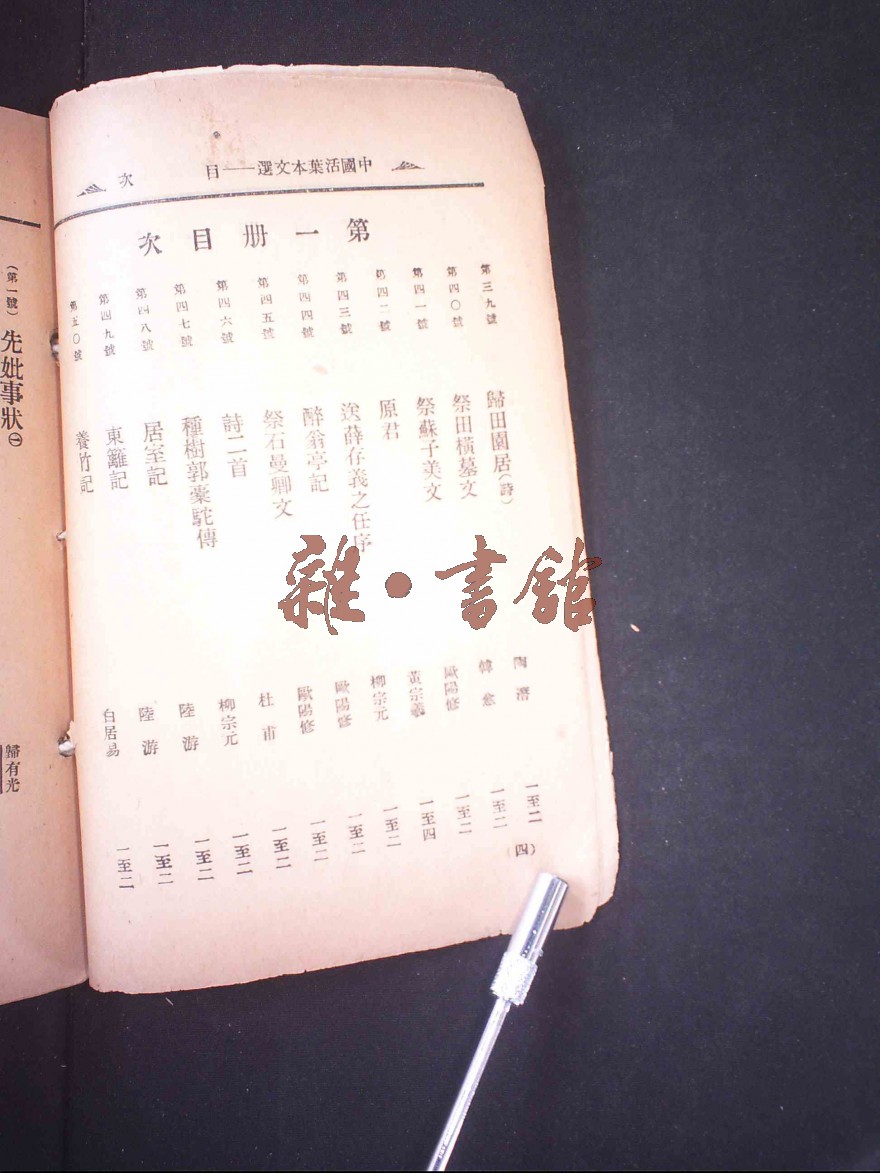 中國活葉本文選——目次
第一册目次
第三九號 歸田園居(詩) 陶潛 一至二
第四〇號 祭田橫墓文 韓愈 一至二
第四一號 祭蘇子美文 歐陽修 一至二
第四二號 原君 黃宗羲 一至四
第四三號 送薛存義之任序 柳宗元 一至二
第四四號 醉翁亭記 歐陽修 一至二
第四五號 祭石曼卿文 歐陽修 一至二
第四六號 詩二首 杜甫 一至二
第四七號 種樹郭橐駝傳 柳宗元 一至二
第四八號 居室記 陸游 一至二
第四九號 東籬記 陸游 一至二
第五〇號 養竹記 白居易 一至二
(四)
(第一號)先妣事狀㊀ 歸有光
雜·書館